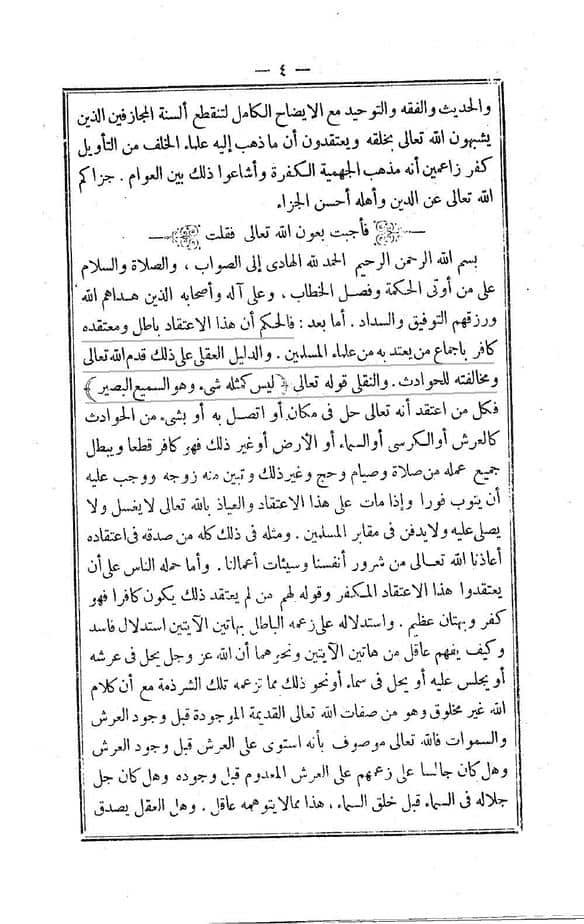 — ٤ —
والحديث والفقه والتوحيد مع الايضاح الكامل لتنقطع ألسنة المجازفين الذين
يشبهون الله تعالى بخلقه ويعتقدون أن ما ذهب إليه علماء الخلف من التأويل
كفر زاعمين أنه مذهب الجهمية الكفرة وأشاعوا ذلك بين العوام . جزاكم
الله تعالى عن الدين وأهله أحسن الجزاء
فأجبت بعون الله تعالى فقلت
بسم الله الرحمن الرحيم الحمد لله الهادى إلى الصواب ، والصلاة والسلام
على من أوتى الحكمة وفصل الخطاب ، وعلى آله وأصحابه الذين هداهم الله
ورزقهم التوفيق والسداد . أما بعد : فالحكم أن هذا الاعتقاد باطل ومعتقده
كافر باجماع من يعتد به من علماء المسلمين . والدليل العقلى على ذلك قدم الله تعالى
ومخالفته للحوادث . والنقلى قوله تعالى ﴿ليس كمثله شىء وهو السميع البصير﴾
فكل من اعتقد أنه تعالى حل فى مكان أو اتصل به أو بشىء من الحوادث
كالعرش أو الكرسى أو السماء أو الأرض أو غير ذلك فهو كافر قطعا ويبطل
جميع عمله من صلاة وصيام وحج وغير ذلك وتبين منه زوجه ووجب عليه
أن يتوب فورا وإذا مات على هذا الاعتقاد والعياذ بالله تعالى لايغسل ولا
يصلى عليه ولايدفن فى مقابر المسلمين . ومثله فى ذلك كله من صدقه فى اعتقاده
أعاذنا الله تعالى من شرور أنفسنا وسيئات أعمالنا . وأما حمله الناس على أن
يعتقدوا هذا الاعتقاد المكفر وقوله لهم من لم يعتقد ذلك يكون كافرا فهو
كفر وبهتان عظيم . واستدلاله على زعمه الباطل بهاتين الآيتين استدلال فاسد
وكيف يفهم عاقل من هاتين الآيتين ونحوهما أن الله عز وجل يحل فى عرشه
أو يجلس عليه أو يحل فى سماء أونحو ذلك مما تزعمه تلك الشرذمة مع أن كلام
الله غير مخلوق وهو من صفات الله تعالى القديمة الموجودة قبل وجود العرش
والسموات فالله تعالى موصوف بأنه استوى على العرش قبل وجود العرش
وهل كان جالسا على زعمهم على العرش المعدوم قبل وجوده وهل كان جل
جلاله فى السماء قبل خلق السماء ، هذا ممالايتوهمه عاقل . وهل العقل يصدق